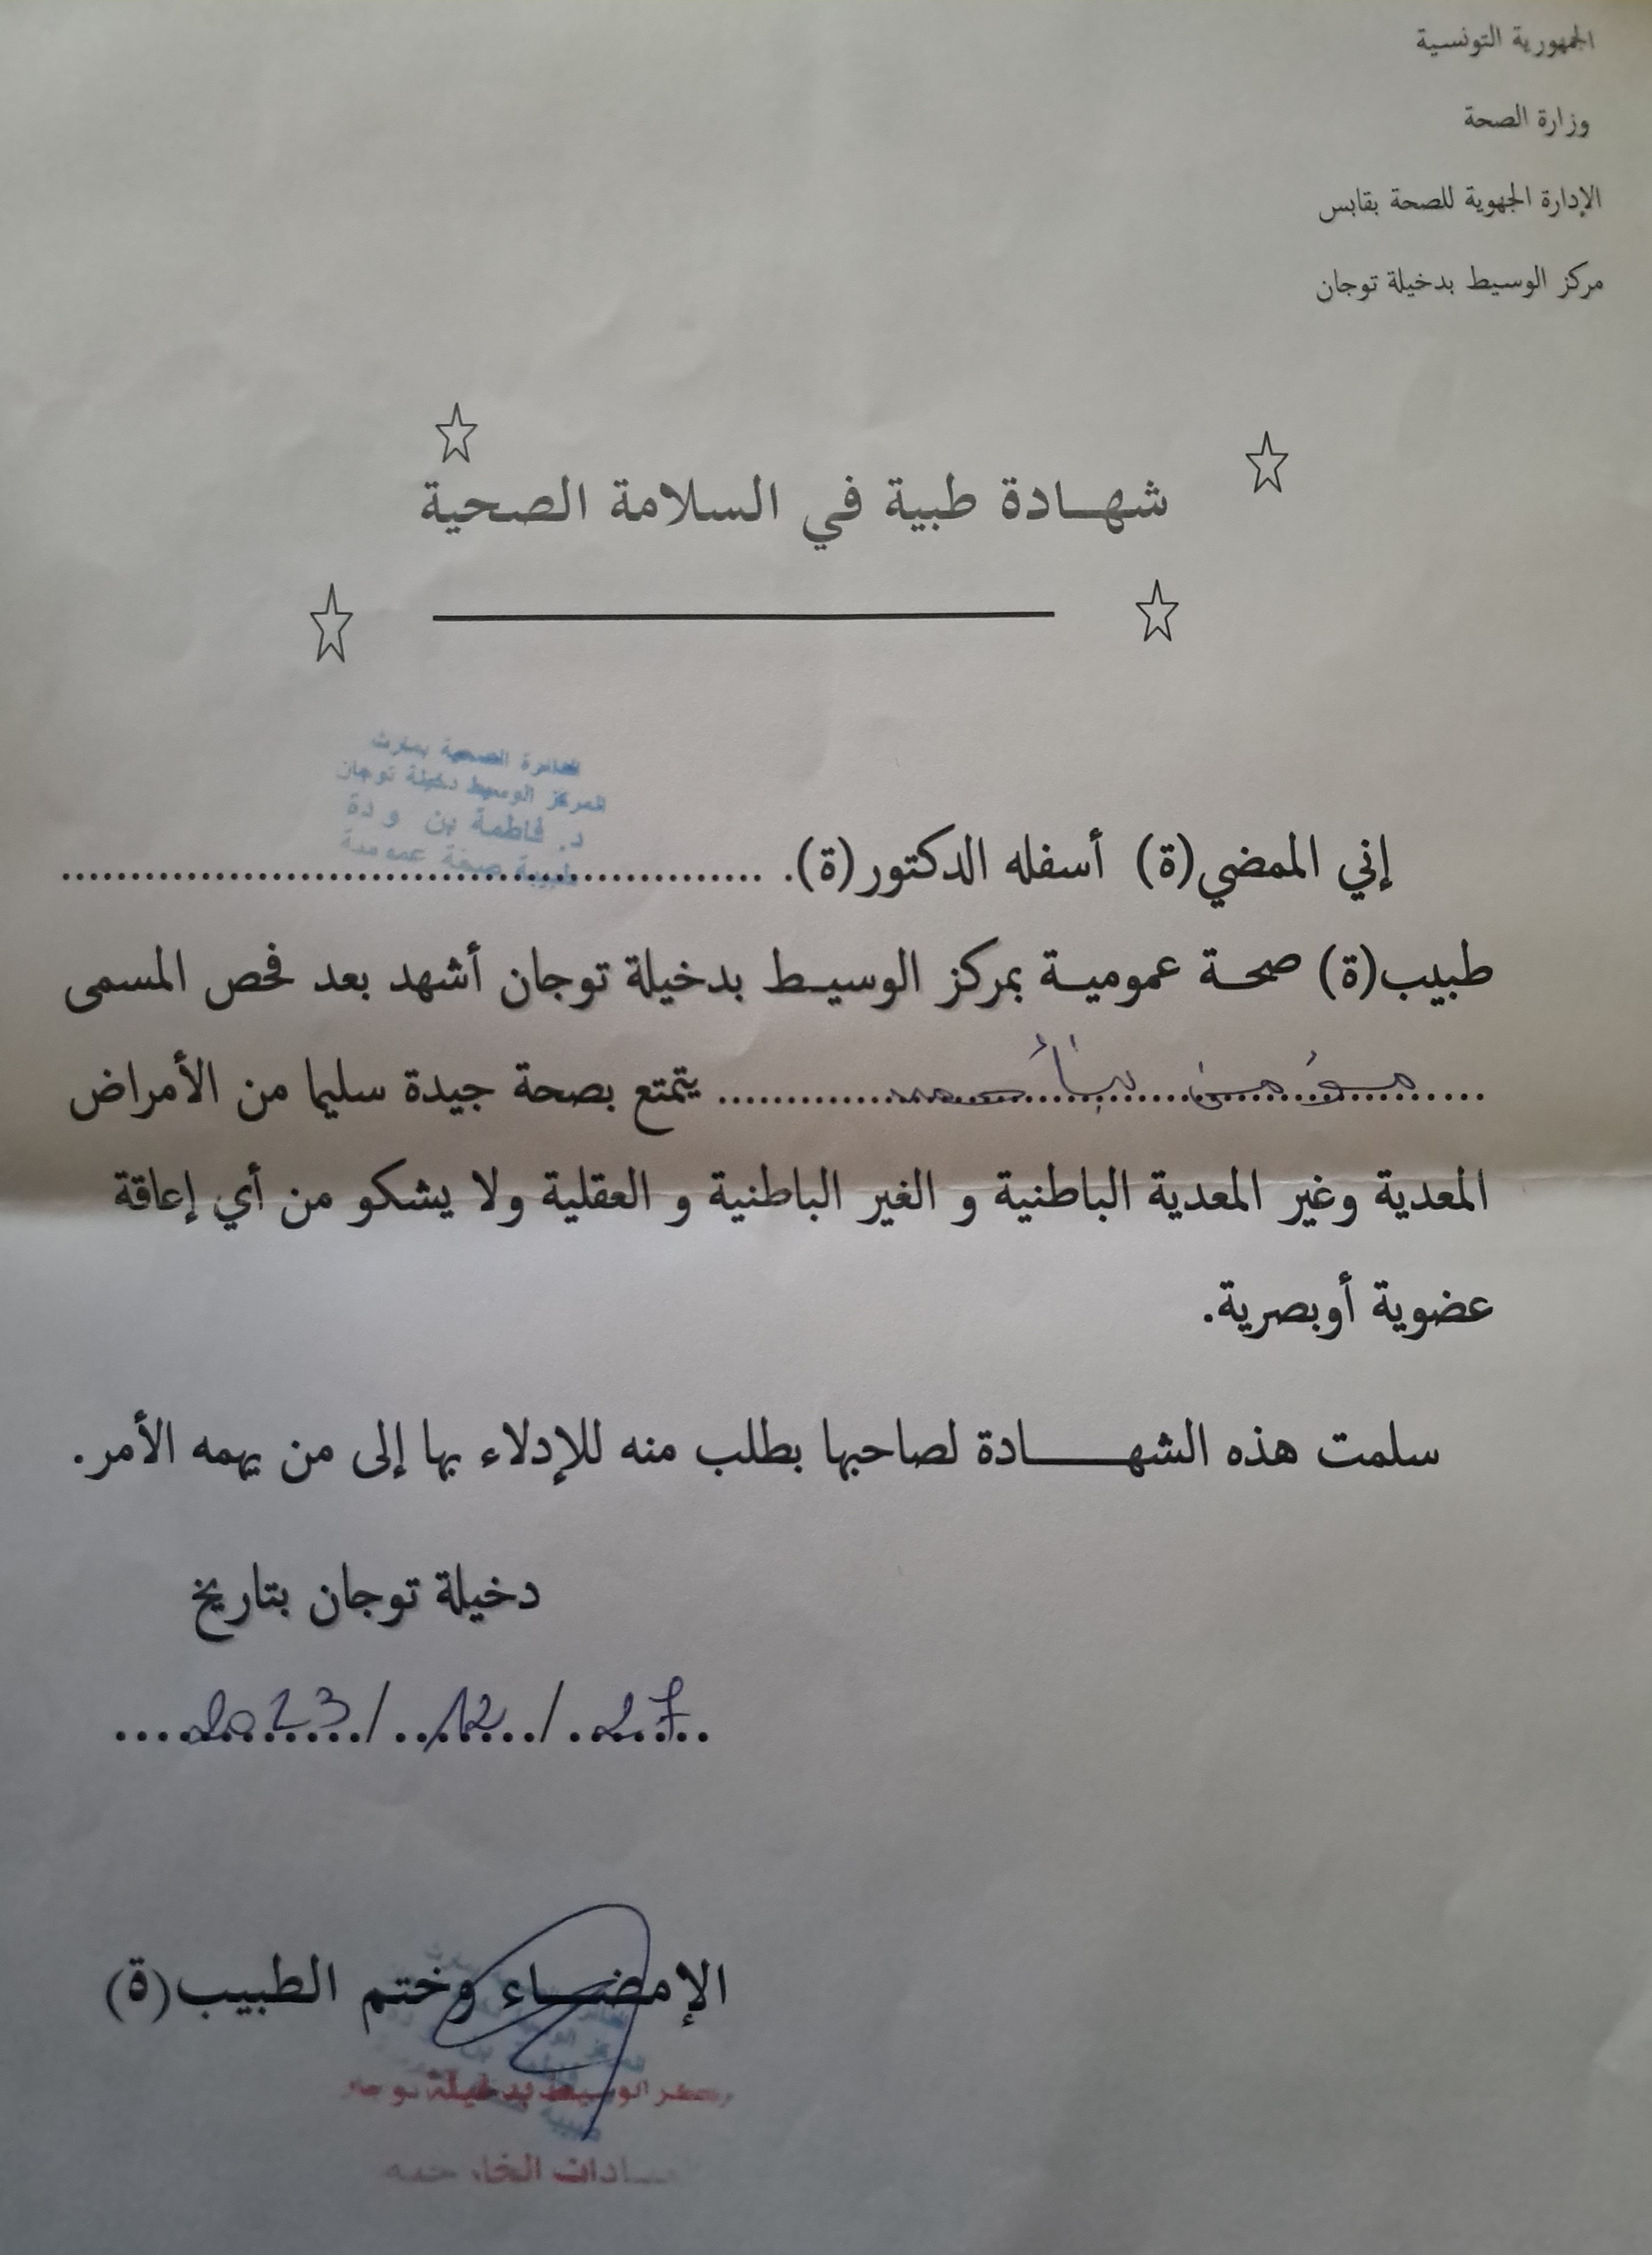 الجمهورية التونسية
وزارة الصحة
الإدارة الجهوية للصحة بقابس
مركز الوسيط بدخيلة توجان
شهـــادة طبية في السلامة الصحية
الدائرة الصحية بمارث
المركز الوسيط دخيلة توجان
د. فاطمة بن و دة
طبيبة صحة عمومية
إني الممضي(ة) أسفله الدكتور(ة). ..................................................
طبيب(ة) صحـة عموميـة بمركز الوسيـط بدخيلة توجان أشهد بعد فحص المسمى
مؤمن ........ يتمتع بصحة جيدة سليما من الأمراض
المعدية وغير المعدية الباطنية و الغير الباطنية و العقلية ولا يشكو من أي إعاقة
عضوية أوبصرية.
سلمت هذه الشهـــــــادة لصاحبها بطلب منه للإدلاء بها إلى من يهمه الأمر.
دخيلة توجان بتاريخ
27/12/2023
الإمضـاء وختم الطبيب(ة)
الوسيط بدخيلة توجان